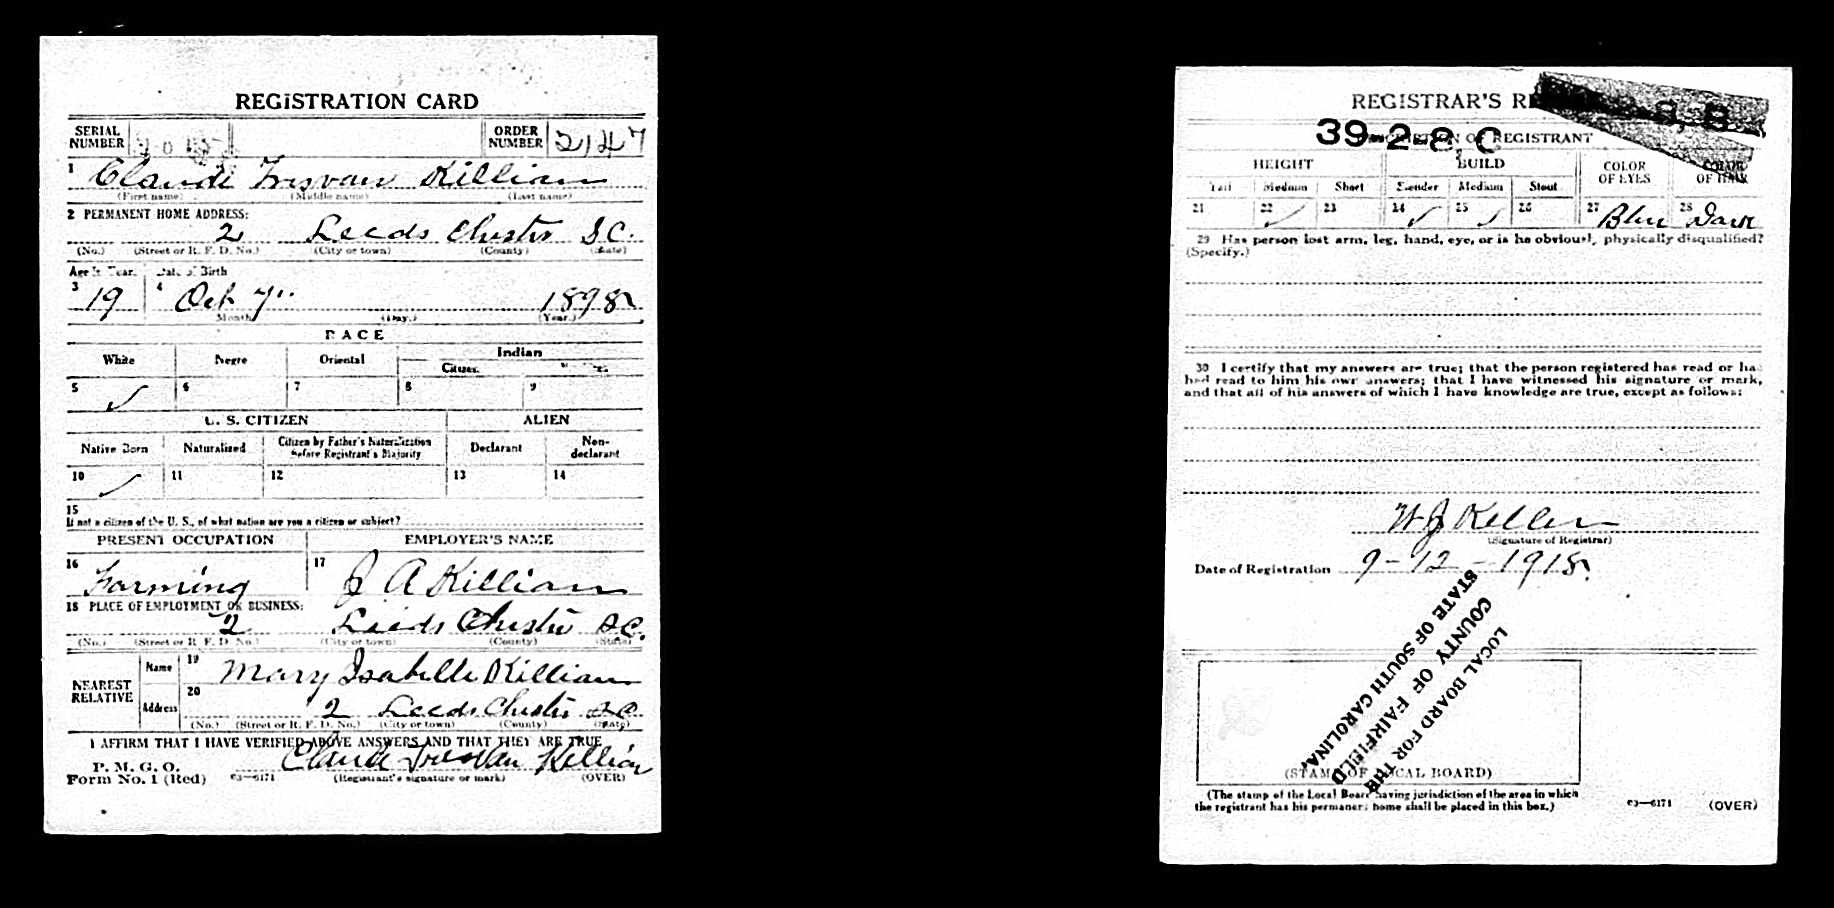 REGISTRATION CARD
SERIAL NUMBER
ORDER NUMBER 2147
1 Claude Tresvan Killian
(First name) (Middle name) (Last name)
2 PERMANENT HOME ADDRESS:
2 Leeds Chester S.C.
(No.) (Street or R. F. D. No.) (City or town) (County) (State)
Age in Years Date of Birth
3 19 4 Oct 7" 1898
Month (Day.) (Year.)
RACE
White Negro Oriental Indian
Citizen
5 ✓ 6 7 8 9
U. S. CITIZEN ALIEN
Native Born Naturalized Citizen by Father's Naturalization before Registrant's Majority Declarant Non-declarant
10 ✓ 11 12 13 14
15
If not a citizen of the U. S., of what nation are you a citizen or subject?
PRESENT OCCUPATION EMPLOYER'S NAME
16 Farming 17 J A Killian
18 PLACE OF EMPLOYMENT OR BUSINESS:
2 Leeds Chester S.C.
(No.) (Street or R. F. D. No.) (City or town) (County) (State)
NEAREST RELATIVE Name 19 Mary Isabelle Killian
Address 20 2 Leeds Chester S.C.
(No.) (Street or R. F. D. No.) (City or town) (County) (State)
I AFFIRM THAT I HAVE VERIFIED ABOVE ANSWERS AND THAT THEY ARE TRUE
P. M. G. O.
Form No. 1 (Red) 03—6171 Claude Tresvan Killian
(Registrant's signature or mark) (OVER)
REGISTRAR'S
39-2-8, C
DESCRIPTION OF REGISTRANT
HEIGHT BUILD COLOR OF EYES COLOR OF HAIR
Tall Medium Short Slender Medium Stout
21 22 ✓ 23 24 ✓ 25 ✓ 26 27 Blue 28 Dark
29 Has person lost arm, leg, hand, eye, or is he obviously physically disqualified?
(Specify.)
30 I certify that my answers are true; that the person registered has read or has
had read to him his own answers; that I have witnessed his signature or mark,
and that all of his answers of which I have knowledge are true, except as follows:
W J Keller
(Signature of Registrar)
Date of Registration 9-12-1918.
LOCAL BOARD FOR THE
COUNTY OF FAIRFIELD
STATE OF SOUTH CAROLINA.
(STAMP OF LOCAL BOARD)
(The stamp of the Local Board having jurisdiction of the area in which
the registrant has his permanent home shall be placed in this box.)
03—6171 (OVER)